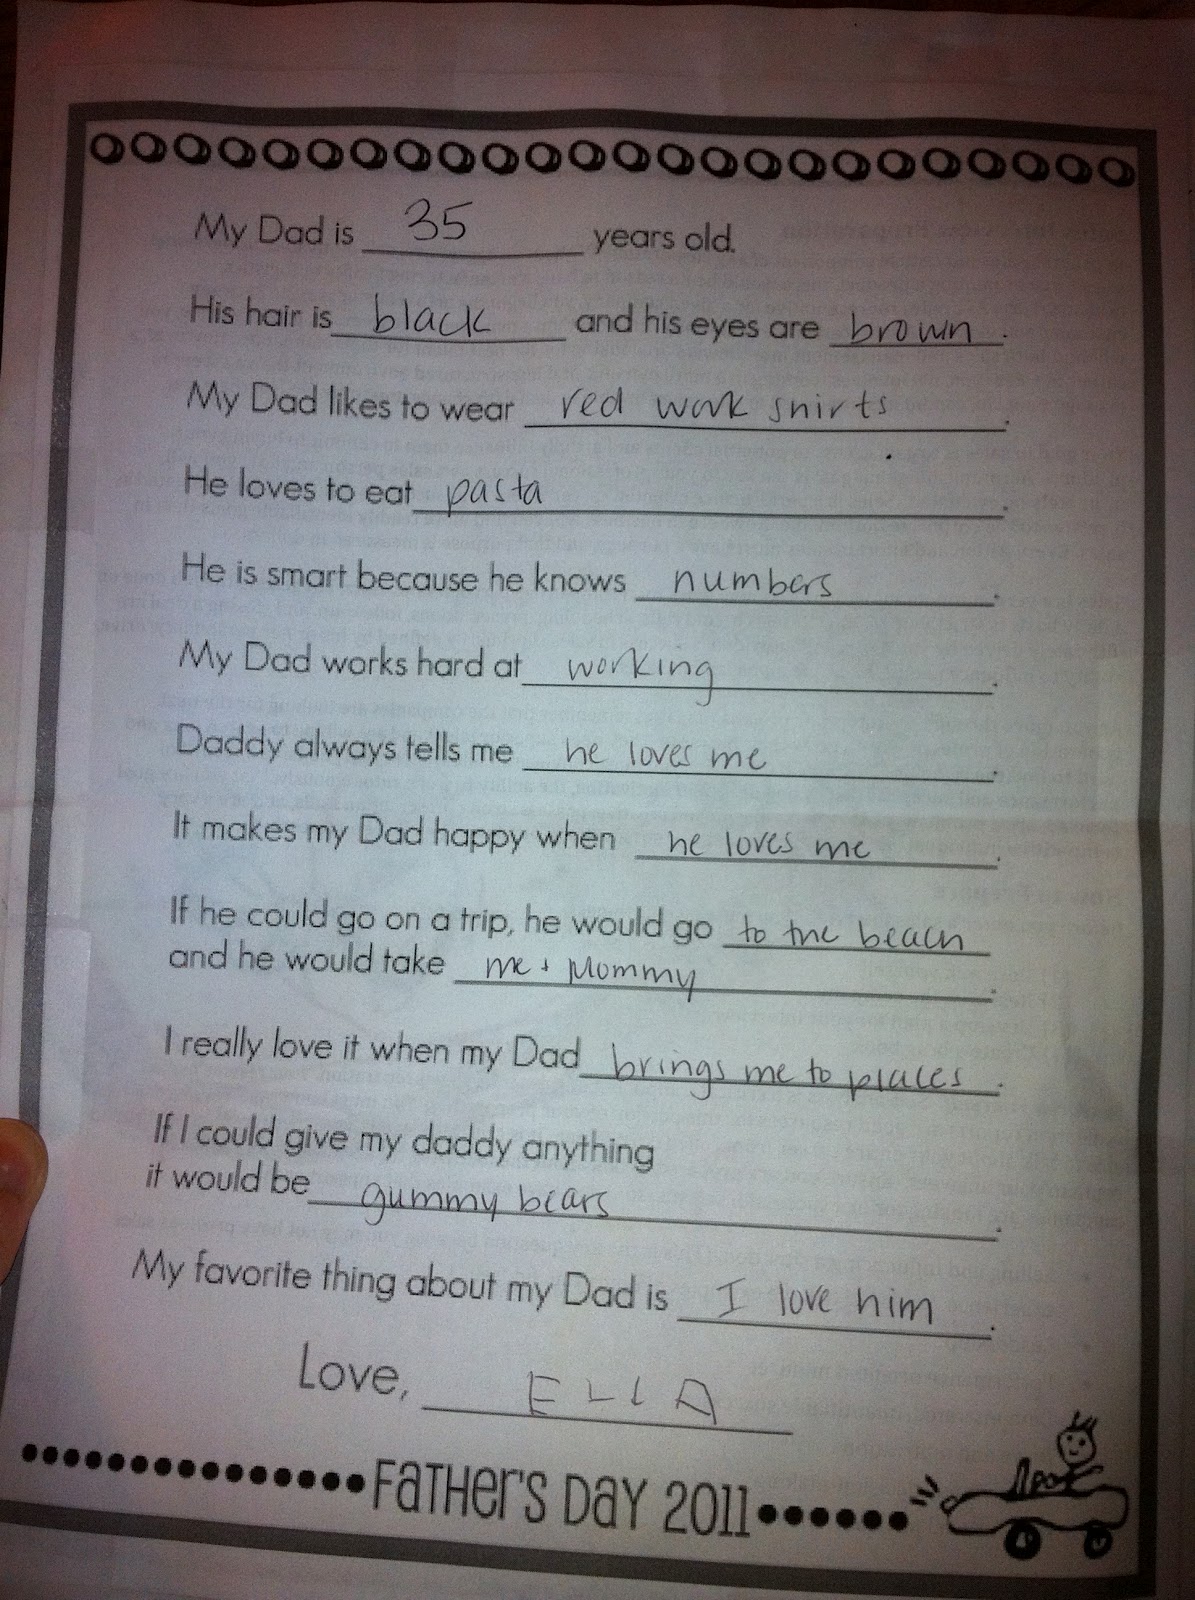 My Dad is 35 years old.
His hair is black and his eyes are brown.
My Dad likes to wear red work shirts.
He loves to eat pasta.
He is smart because he knows numbers.
My Dad works hard at working.
Daddy always tells me he loves me.
It makes my Dad happy when he loves me.
If he could go on a trip, he would go to the beach
and he would take me + Mommy.
I really love it when my Dad brings me to places.
If I could give my daddy anything
it would be gummy bears.
My favorite thing about my Dad is I love him.
Love, ELLA
FATHER'S DAY 2011